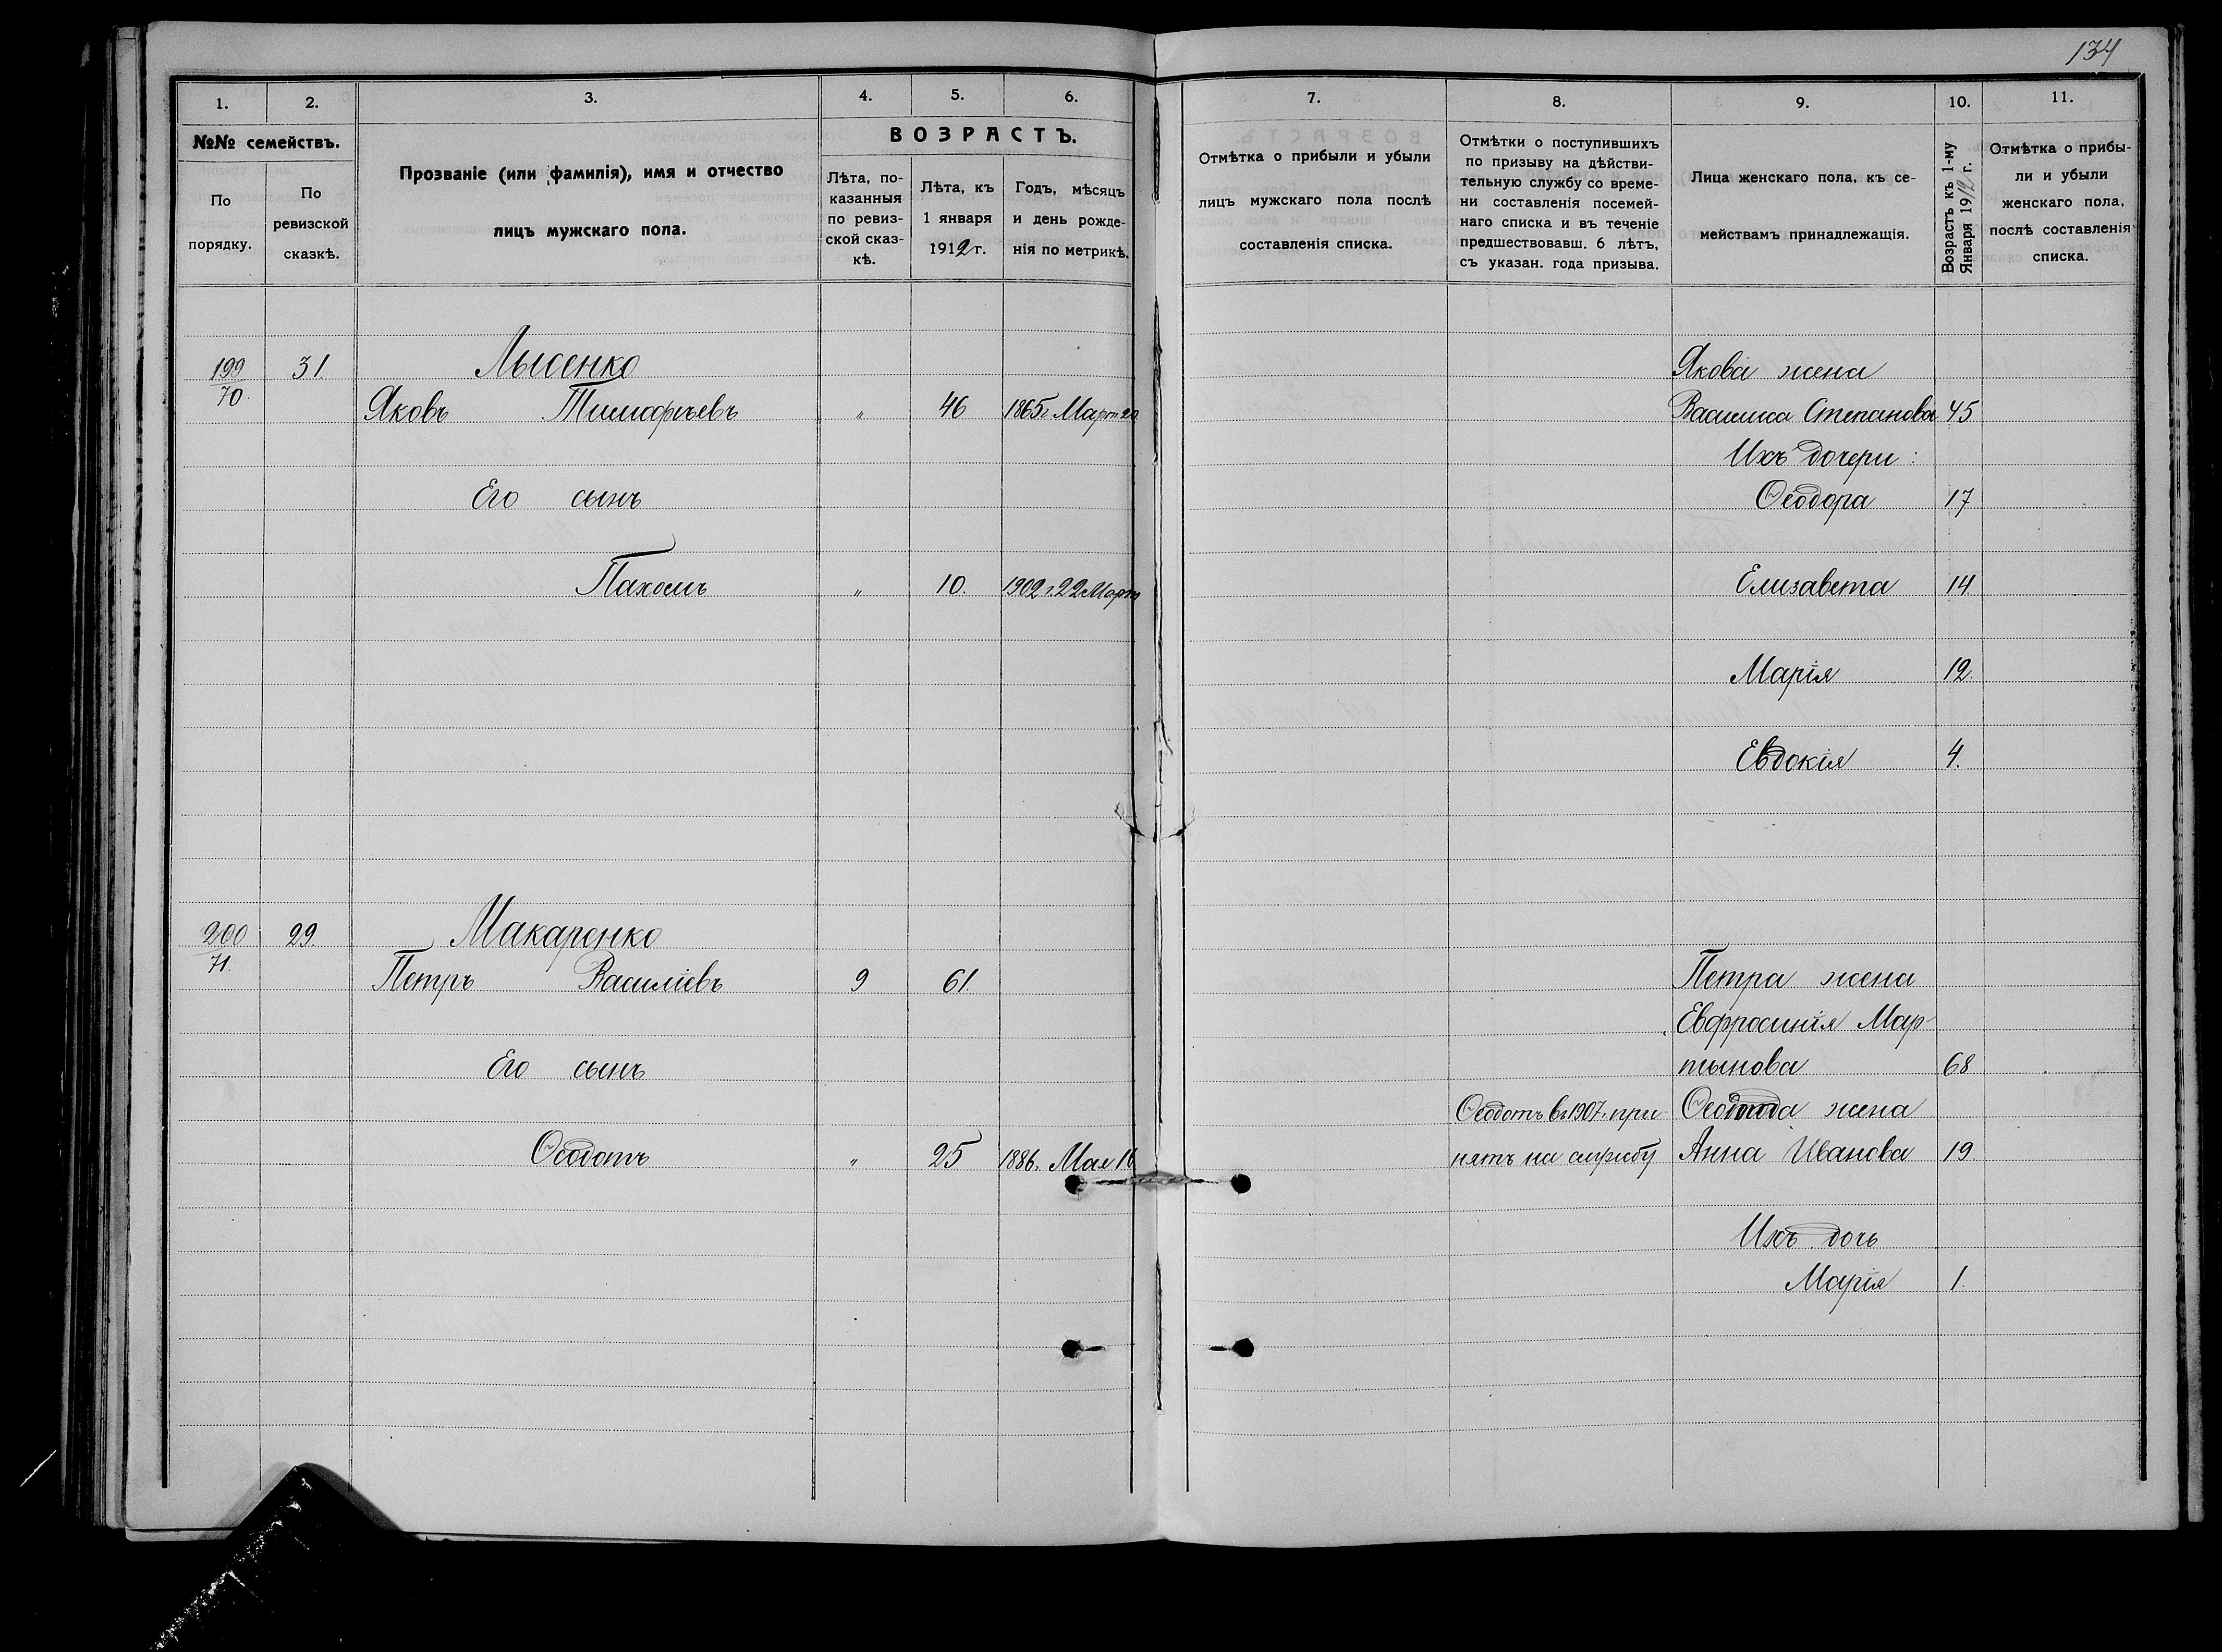 134
1. 2. 3. 4. 5. 6.
№№ семействъ.
По порядку.
По ревизской сказкѣ.
Прозваніе (или фамилія), имя и отчество
лицъ мужскаго пола.
ВОЗРАСТЪ.
Лѣта, по-
казанныя
по ревиз-
ской сказ-
кѣ.
Лѣта, къ
1 января
1912 г.
Годъ, мѣсяцъ
и день рожде-
нія по метрикѣ.
199/70. 31. Лысенко
Яковъ Тимофѣевъ " 46 1865 г. Март 20
Его сынъ
Пахомъ " 10. 1902 г. 22 Марта
200/71. 29 Макаренко
Петръ Василіевъ 9 61.
Его сынъ
Ѳеодотъ " 25 1886. Мая 16
7. 8. 9. 10. 11.
Отмѣтка о прибыли и убыли
лицъ мужскаго пола послѣ
составленія списка.
Отмѣтки о поступившихъ
по призыву на дѣйстви-
тельную службу со време-
ни составленія посемей-
наго списка и въ теченіе
предшествовавш. 6 лѣтъ,
съ указан. года призыва.
Лица женскаго пола, къ се-
мействамъ принадлежащія.
Возрастъ къ 1-му
Января 1912 г.
Отмѣтка о прибы-
ли и убыли
женскаго пола,
послѣ составленія
списка.
Якова жена
Василиса Степанова 45
Ихъ дочери:
Ѳеодора 17
Елизавета 14
Марія 12.
Евдокія 4.
Петра жена
Евфросинія Мар-
тынова 68
Ѳеодотъ въ 1907 г. при- Ѳеодота жена
нятъ на службу Анна Иванова 19
Ихъ дочь
Марія 1.